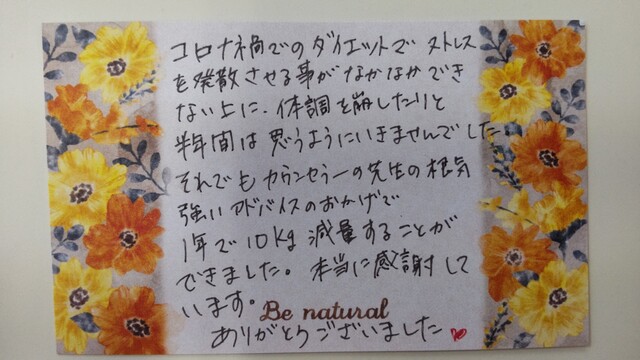 コロナ禍でのダイエットで ストレス
を発散させる事がなかなかでき
ない上に、体調を崩したりと
半年間は思うようにいきませんでした
それでもカウンセラーの先生の根気
強いアドバイスのおかげで
1年で10kg減量することが
できました。本当に感謝して
います。 Be natural
ありがとうございました